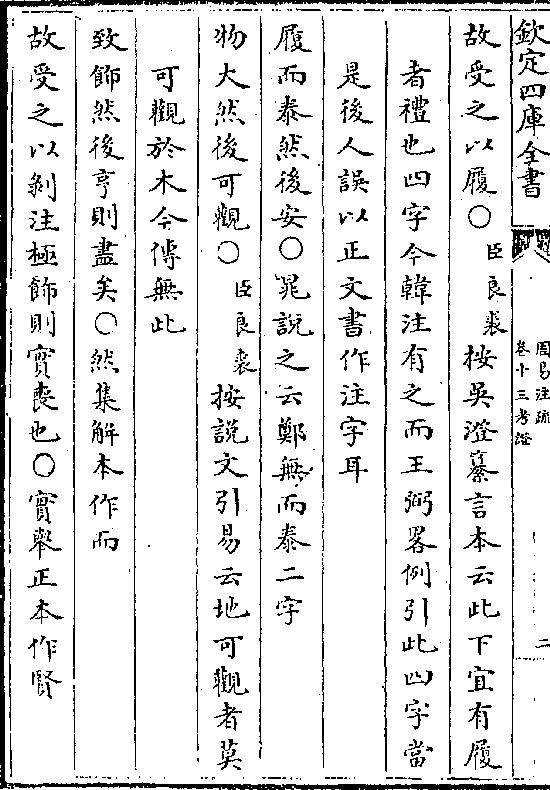 欽定四庫全書
周易注疏
卷十三考證
二
故受之以履〇臣良裘按吳澄纂言本云此下宜有履
者禮也四字今韓注有之而王弼畧例引此四字當
是後人誤以正文書作注字耳
履而泰然後安〇晁說之云鄭無而泰二字
物大然後可觀〇臣良裘按說文引易云地可觀者莫
可觀於木今傳無此
致飾然後亨則盡矣〇然集解本作而
故受之以剝注極飾則實喪也〇實舉正本作賢